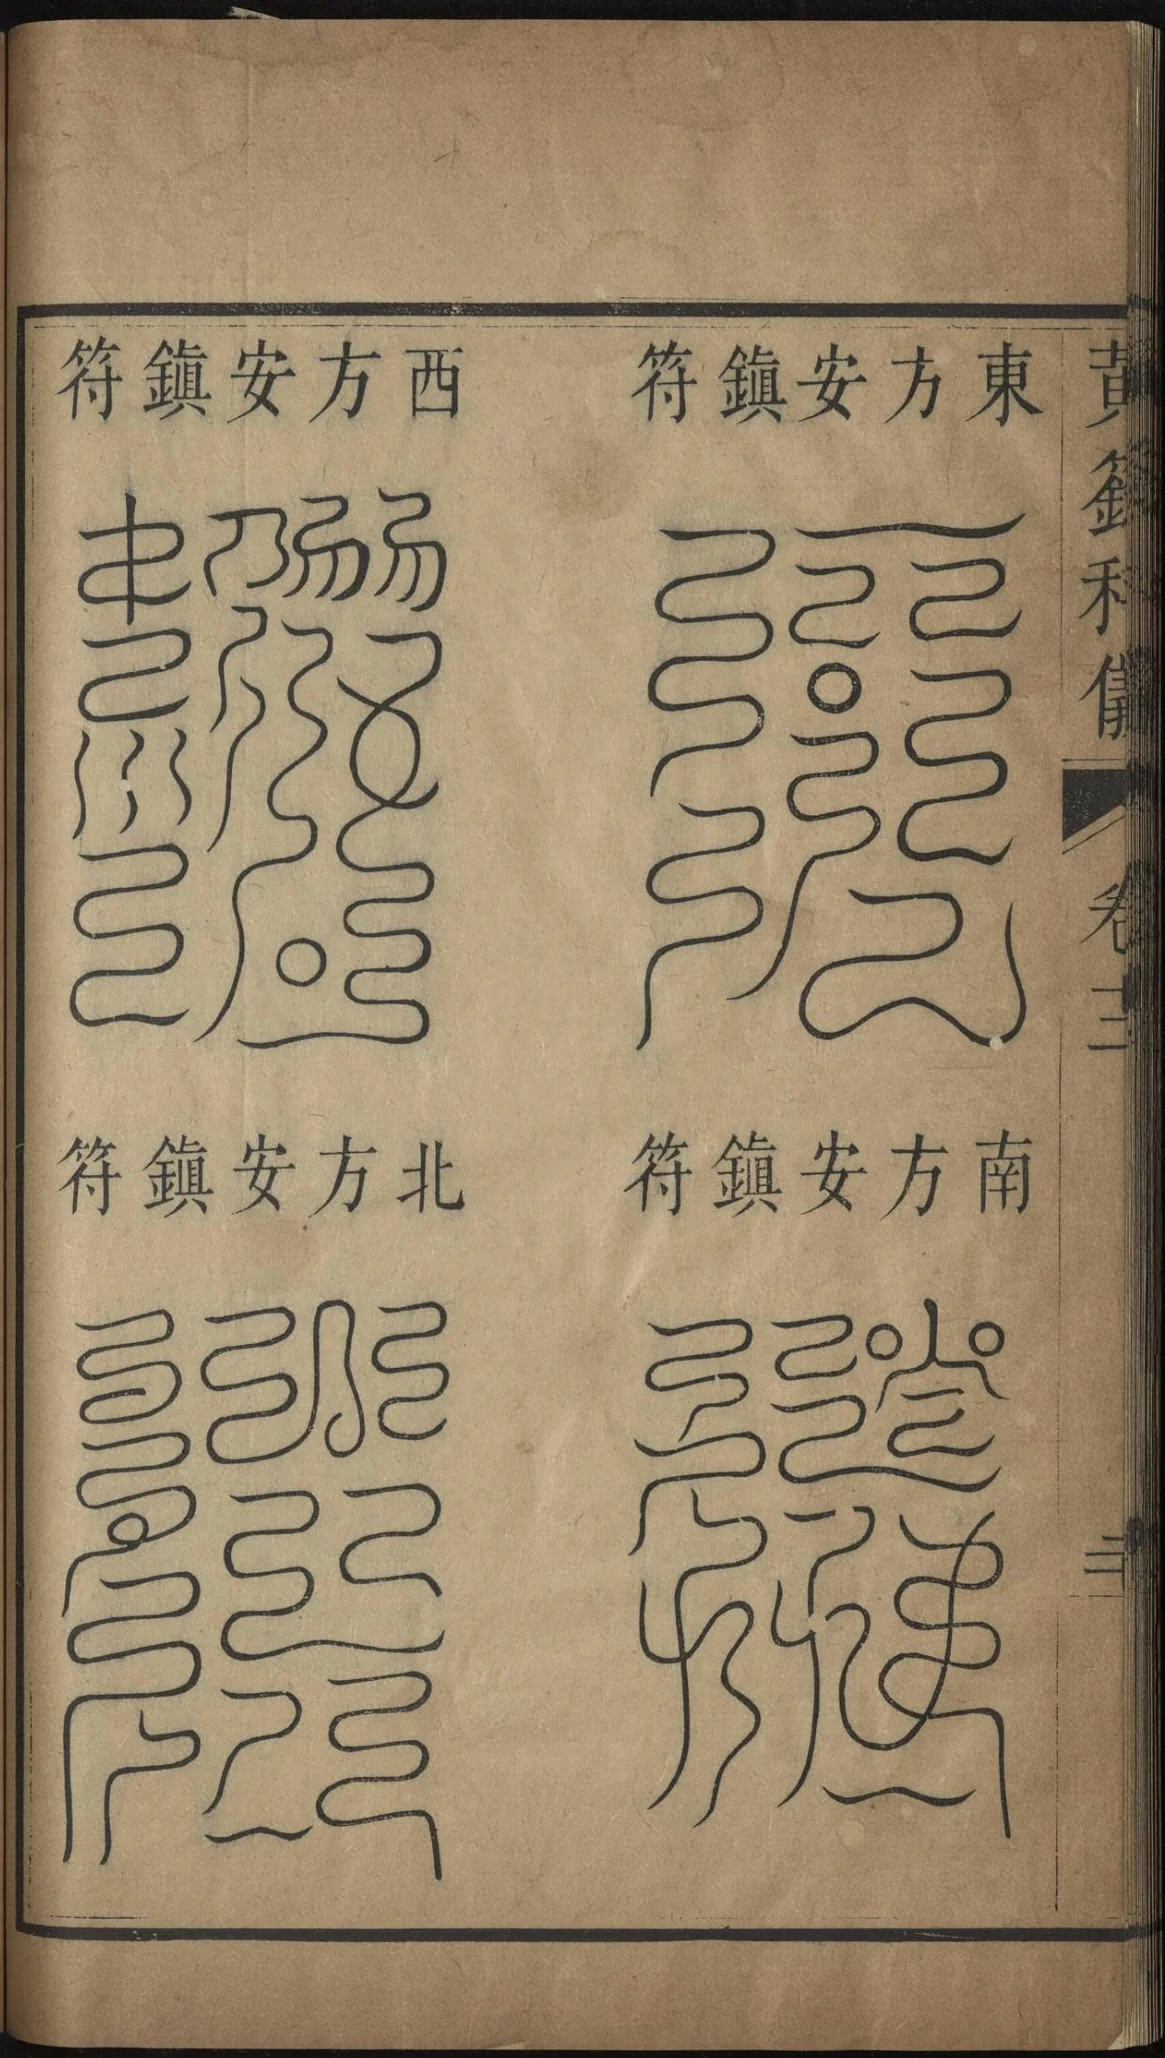 黃籙科儀 卷十二
東方安鎮符
南方安鎮符
西方安鎮符
北方安鎮符